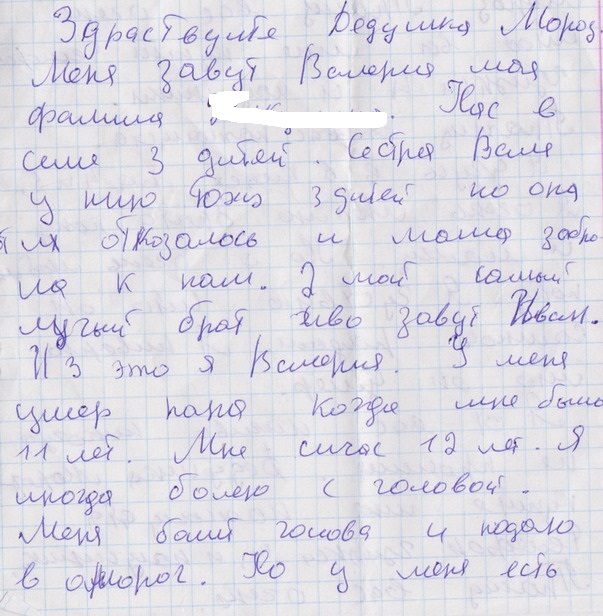 Здраствуите Дедушка Мороз.
Меня завут Валерия моя
фамилиа . Нас в
семе 3 дитей. Сестра Валя
у нию тожэ 3 дитей но она
от их отказалось и мама забра
ла к нам. 2 мой самый
лучый брат иво завут Иван.
И 3 это я Валерия. У меня
умер папа когда мне было
11 лет. Мне сичас 12 лет. Я
иногда болею с головой.
Меня болит голова и подаю
в обморог. Но у меня есть